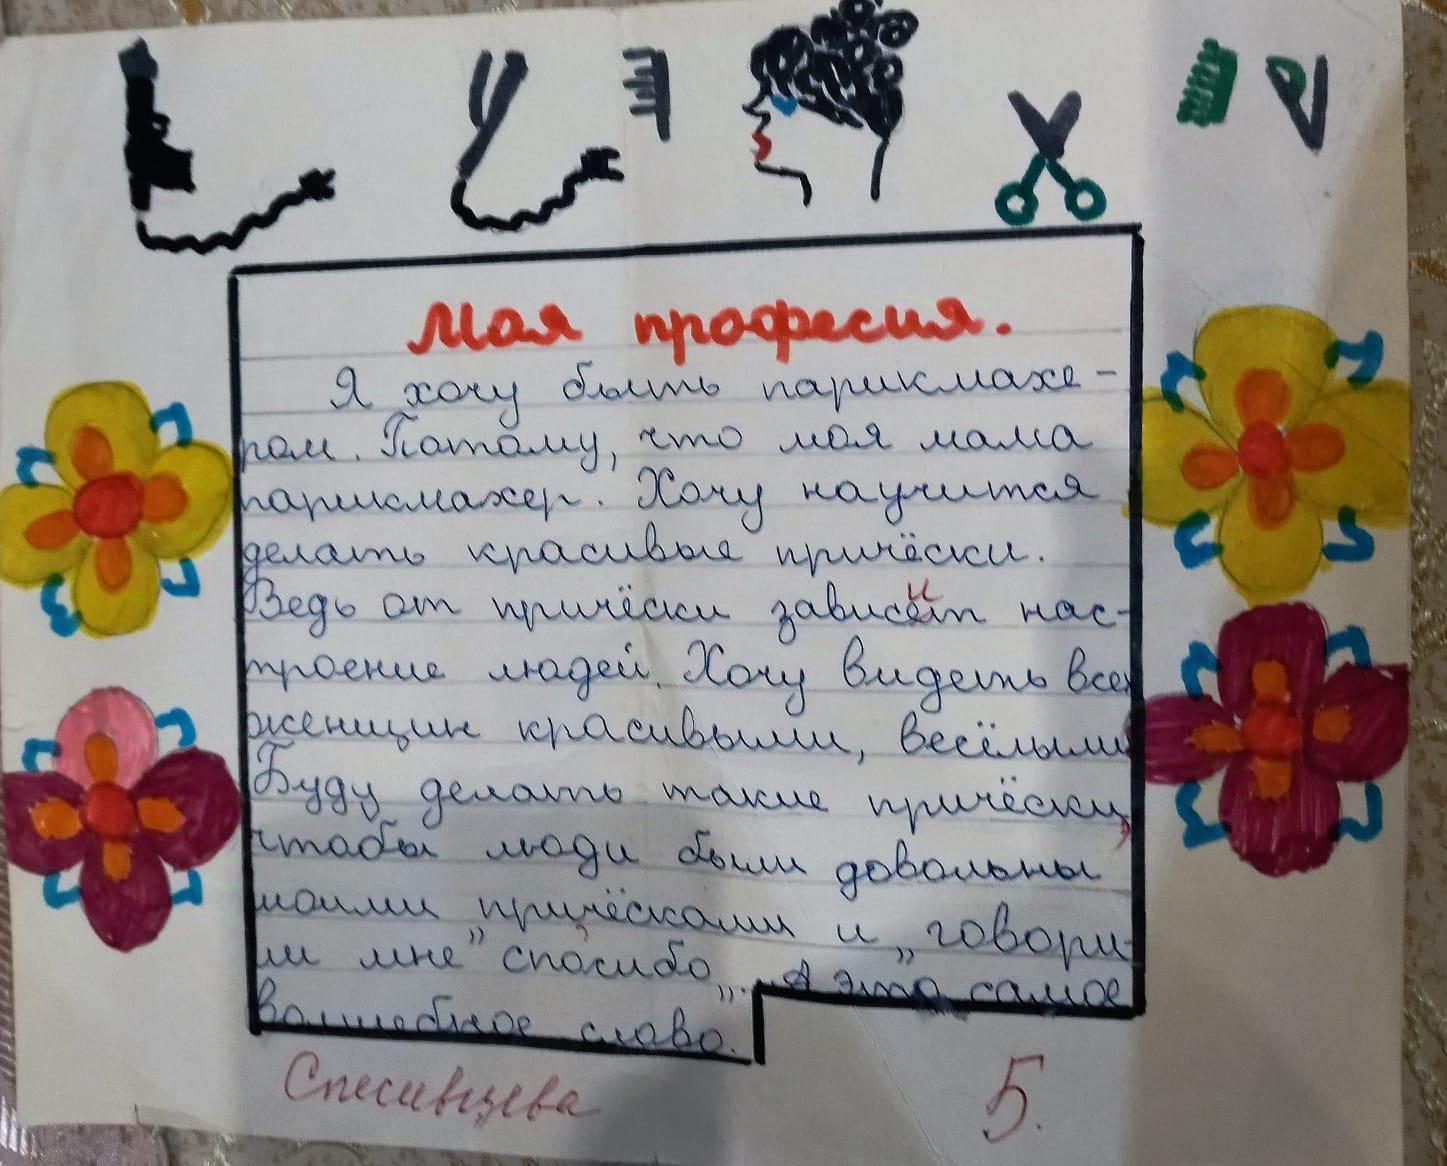 Моя професия.
Я хочу быть парикмахе-
ром. Потому, что моя мама
парикмахер. Хочу научится
делать красивые причёски.
Ведь от причёски зависит нас-
троение людей. Хочу видеть всех
женщин красивыми, весёлыми
Буду делать такие причёски,
чтобы люди были довольны
моими причёсками и „говори-
ли мне" спосибо„. А это самое
волшебное слово.
Спесивцева
5.